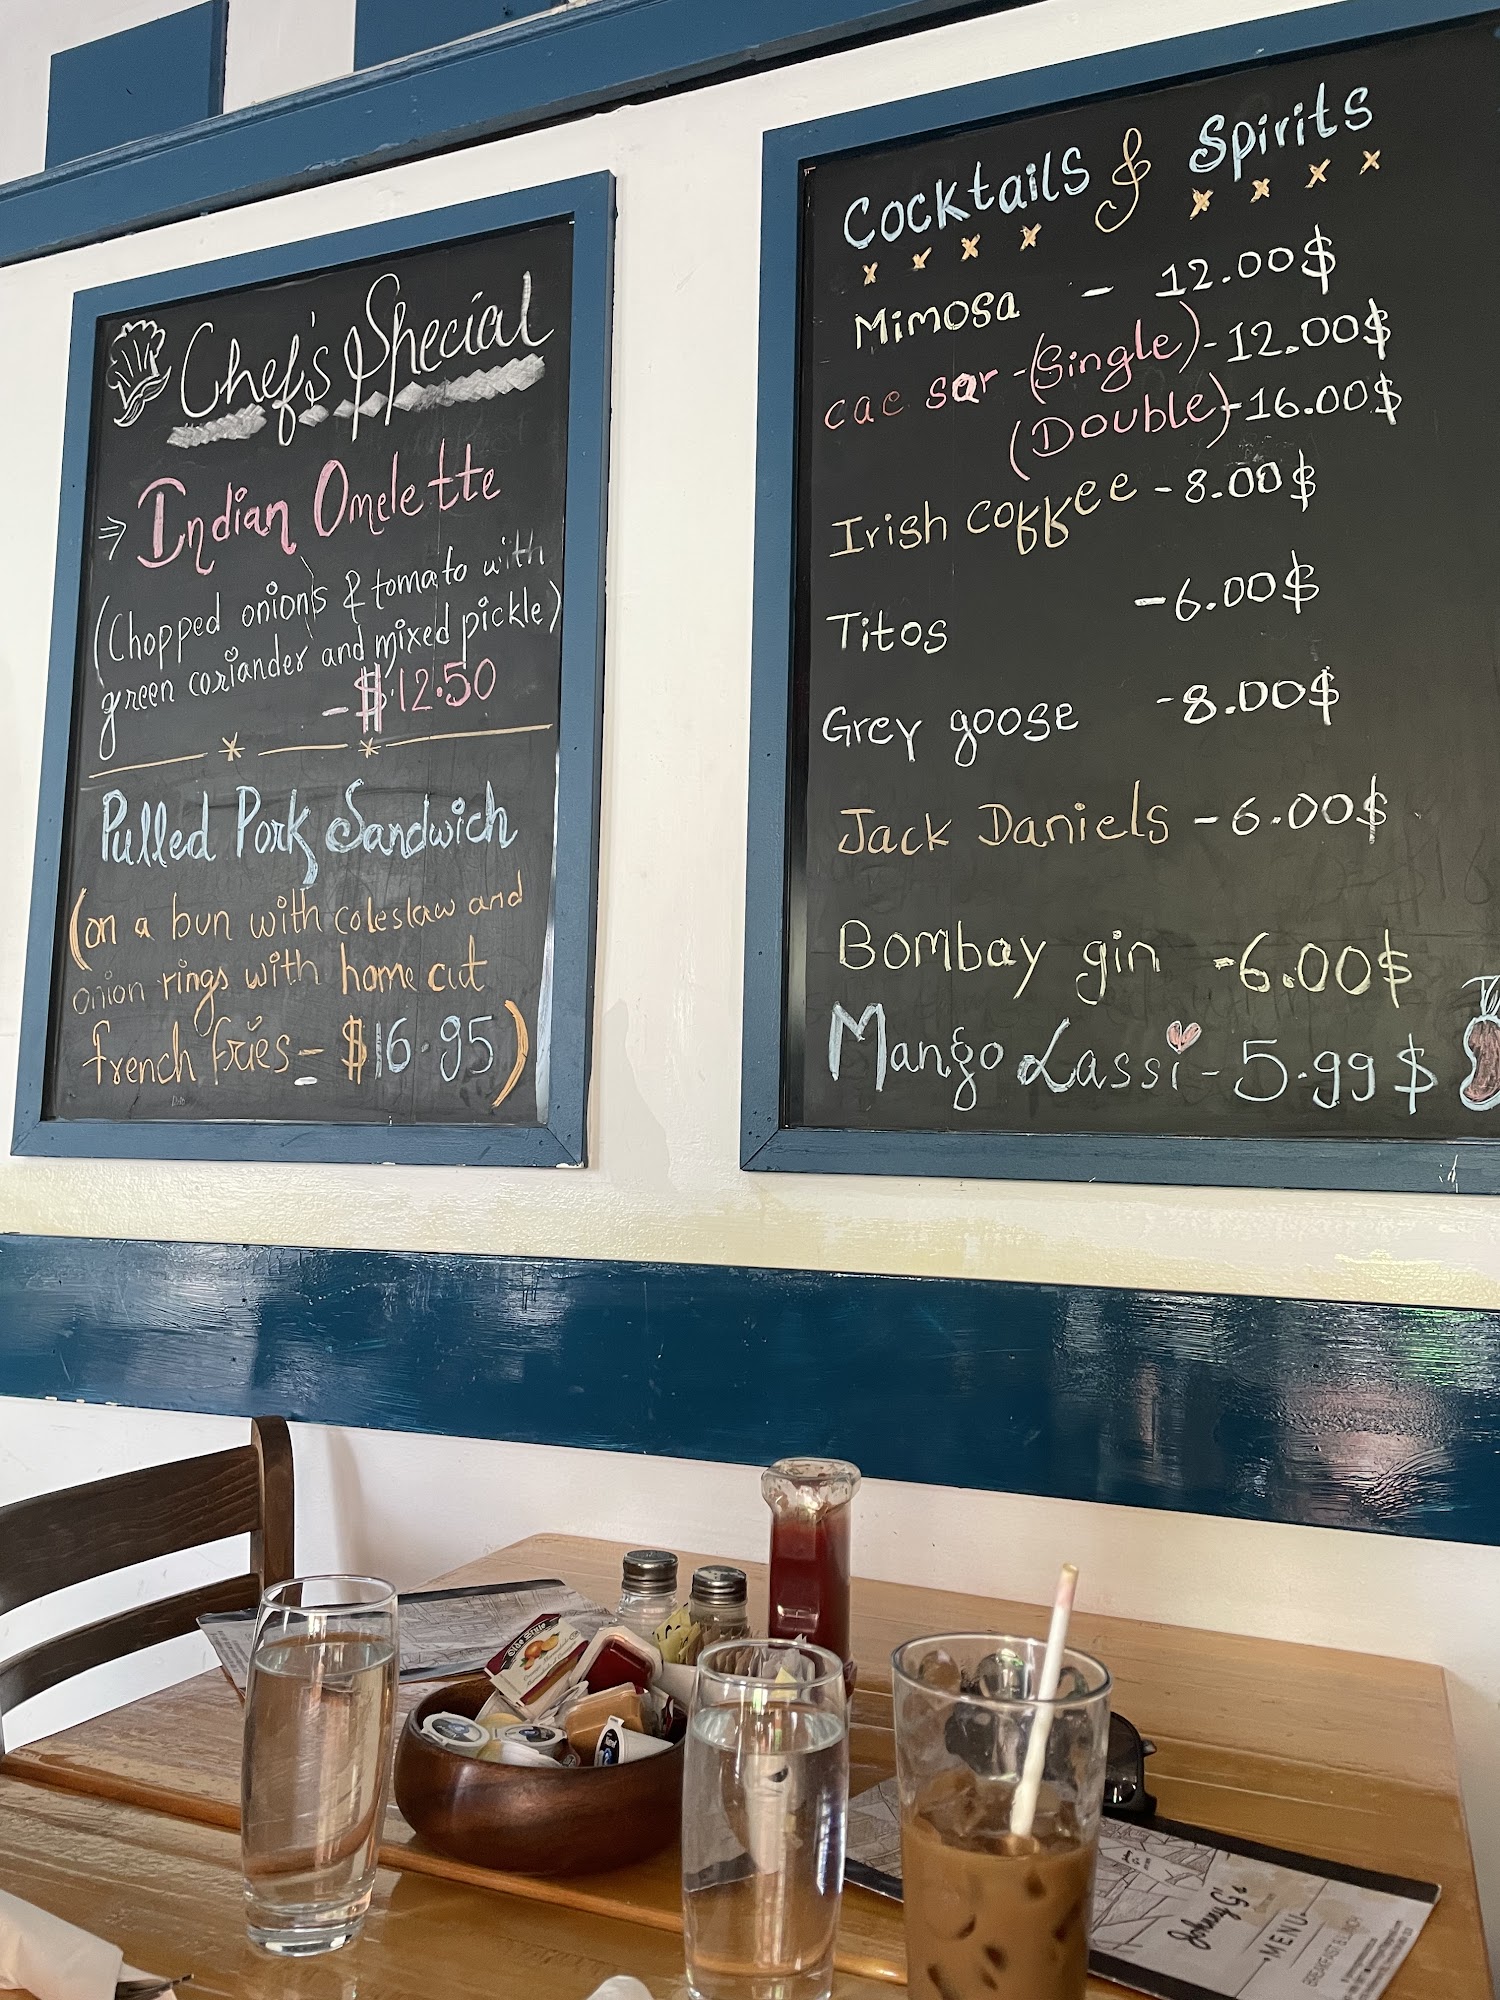 Chef's Special
⇒ Indian Omelette
(Chopped onions & tomato with
green coriander and mixed pickle)
- $12.50
Pulled Pork Sandwich
(on a bun with coleslaw and
onion rings with home cut
french fries - $16.95)
Cocktails & Spirits
Mimosa - 12.00$
cae sar - (Single) - 12.00$
(Double) - 16.00$
Irish coffee - 8.00$
Titos - 6.00$
Grey goose - 8.00$
Jack Daniels - 6.00$
Bombay gin - 6.00$
Mango Lassi - 5.99$
Johnny G's
MENU